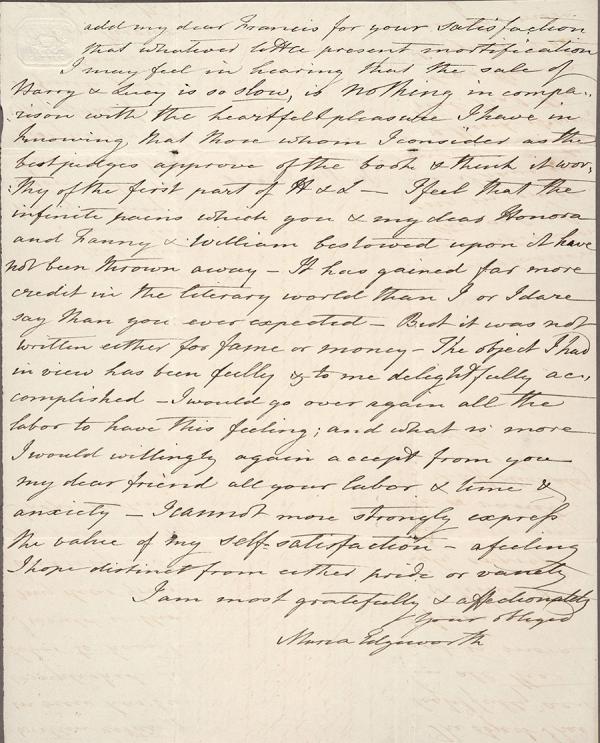 add my dear Francis for your satisfaction
that whatever little present mortification
I may feel in hearing that the sale of
Harry & Lucy is so slow, is nothing in compa-
rison with the heartfelt pleasure I have in
knowing that those whom I consider as the
best judges approve of the book & think it wor-
thy of the first part of H & L — I feel that the
infinite pains which you & my dear Honora
and Fanny & William bestowed upon it have
not been thrown away — It has gained far more
credit in the literary world than I or I dare
say than you ever expected — But it was not
written either for fame or money — The object I had
in view has been fully & to me delightfully ac-
complished — I would go over again all the
labor to have this feeling; and what is more
I would willingly again accept from you
my dear friend all your labor & time &
anxiety — I cannot more strongly express
the value of my self-satisfaction — a feeling
I hope distinct from either pride or vanity
I am most gratefully & affectionately
Your obliged
Maria Edgeworth